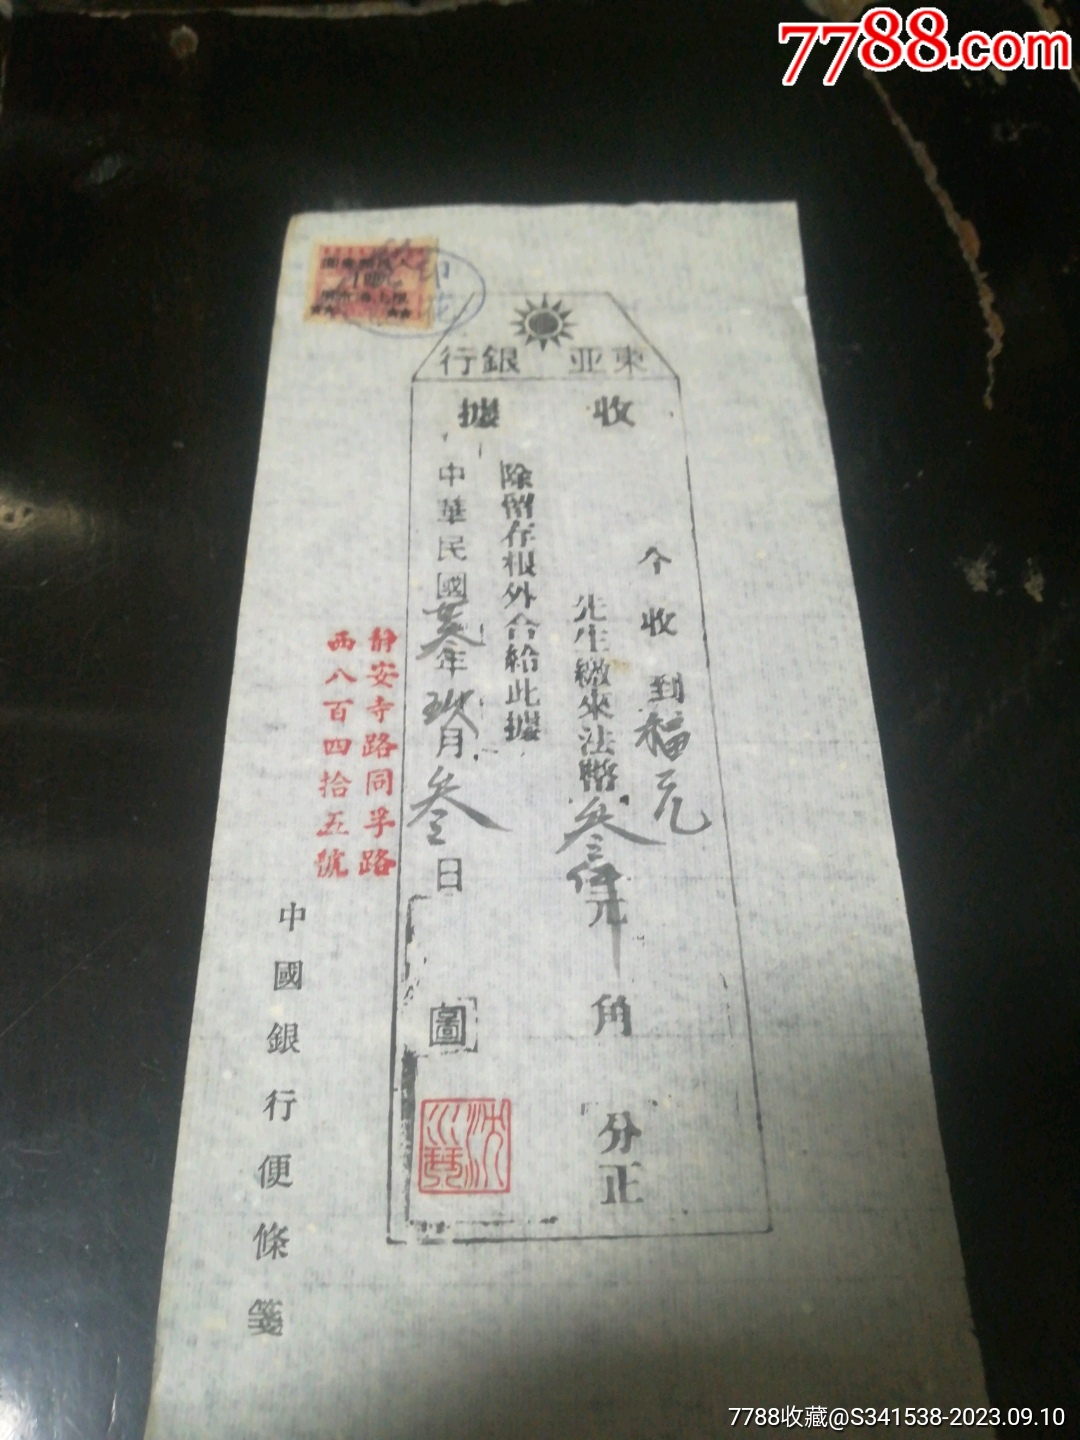 7788.com
東亚銀行
收據
今收到福元
先生繳來法幣叁佰元角分正
除留存根外合給此據
中華民國年玖月叁日
圖
靜安寺路同孚路
西八百四拾五號
中國銀行便條箋
7788收藏@S341538-2023.09.10